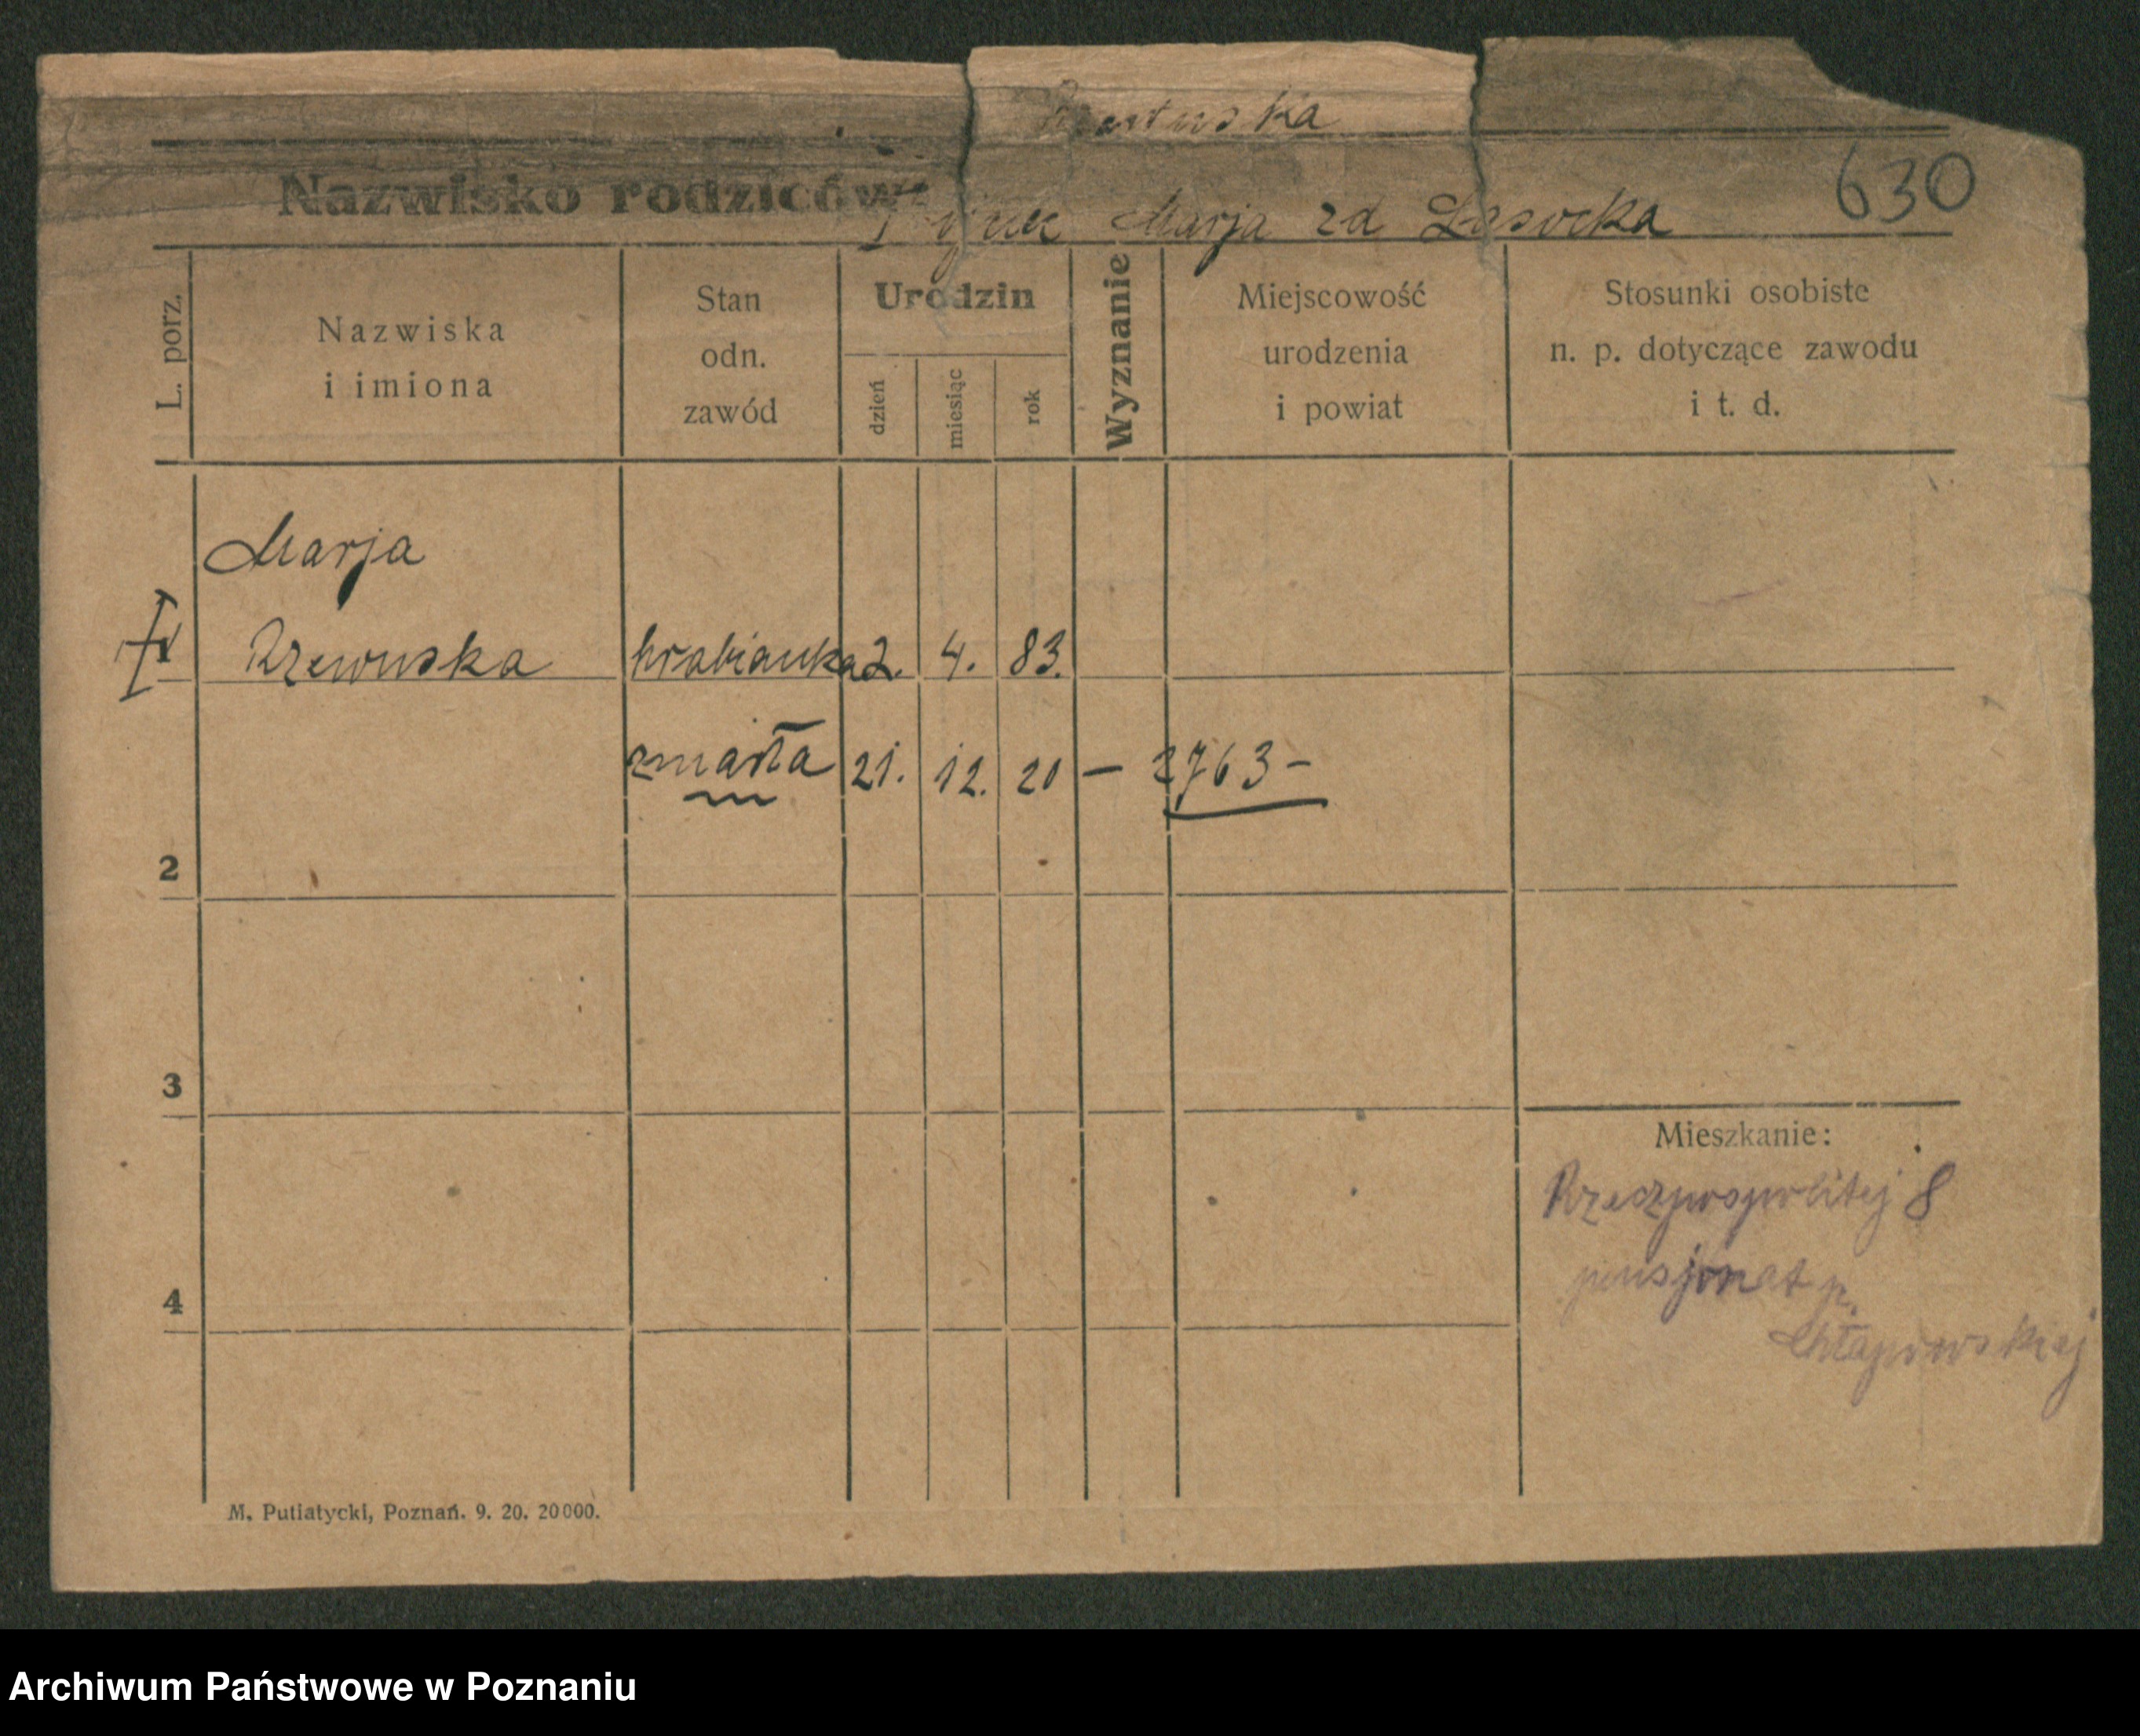 Nazwisko rodziców:
Marja zd Lasocka
630
L. porz.
Nazwiska
i imiona
Stan
odn.
zawód
Urodzin
dzień
miesiąc
rok
Wyznanie
Miejscowość
urodzenia
i powiat
Stosunki osobiste
n. p. dotyczące zawodu
i t. d.
Marja
1 Rzewuska hrabianka 2. 4. 83.
zmarła 21. 12. 20 – 2763 –
2
3
Mieszkanie:
Rzeczpospolitej 8
pensjonat p.
Chłapowskiej
4
M. Putiatycki, Poznań. 9. 20. 20000.
Archiwum Państwowe w Poznaniu